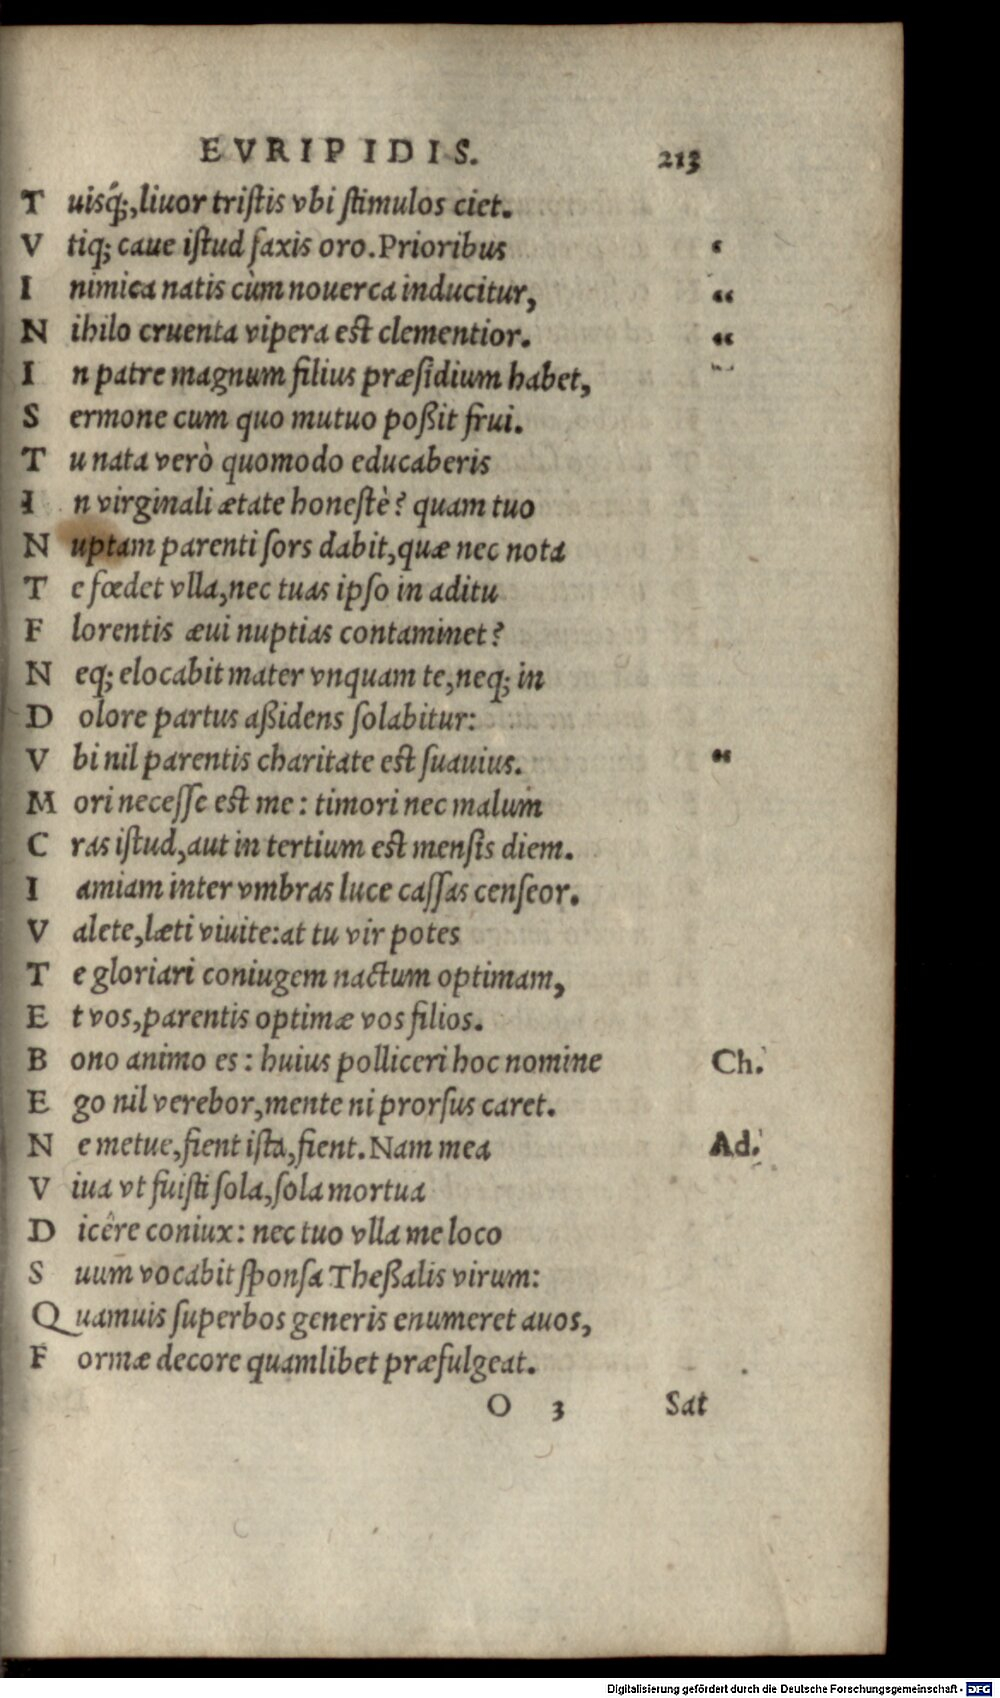 EVRIPIDIS. 213
T uisq́;, liuor tristis vbi stimulos ciet.
V tiq; caue istud faxis oro. Prioribus "
I nimica natis cùm nouerca inducitur, "
N ihilo cruenta vipera est clementior. "
I n patre magnum filius præsidium habet,
S ermone cum quo mutuo poßit frui.
T u nata verò quomodo educaberis
I n virginali ætate honestè? quam tuo
N uptam parenti sors dabit, quæ nec nota
T e fœdet vlla, nec tuas ipso in aditu
F lorentis æui nuptias contaminet?
N eq; elocabit mater vnquam te, neq; in
D olore partus aßidens solabitur:
V bi nil parentis charitate est suauius. "
M ori necesse est me: timori nec malum
C ras istud, aut in tertium est mensis diem.
I amiam inter vmbras luce cassas censeor.
V alete, læti viuite: at tu vir potes
T e gloriari coniugem nactum optimam,
E t vos, parentis optimæ vos filios.
B ono animo es: huius polliceri hoc nomine Ch.
E go nil verebor, mente ni prorsus caret.
N e metue, fient ista, fient. Nam mea Ad.
V iua vt fuisti sola, sola mortua
D icêre coniux: nec tuo vlla me loco
S uum vocabit sponsa Theßalis virum:
Q uamuis superbos generis enumeret auos,
F ormæ decore quamlibet præfulgeat.
O 3 Sat
Digitalisierung gefördert durch die Deutsche Forschungsgemeinschaft - DFG